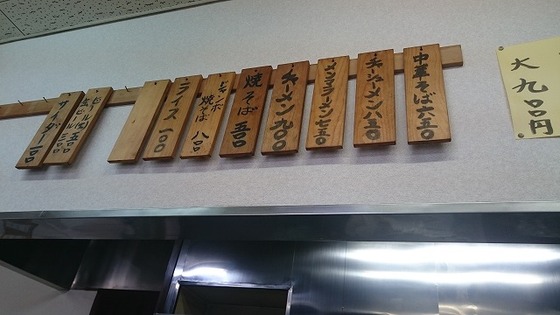 大 九〇〇円
中華そば 六五〇
チャーシューメン 八五〇
メンマラーメン 七五〇
チャーメン 九〇〇
焼そば 五〇〇
ジャンボ焼そば 八〇〇
ライス 一〇〇
サイダー 一〇〇